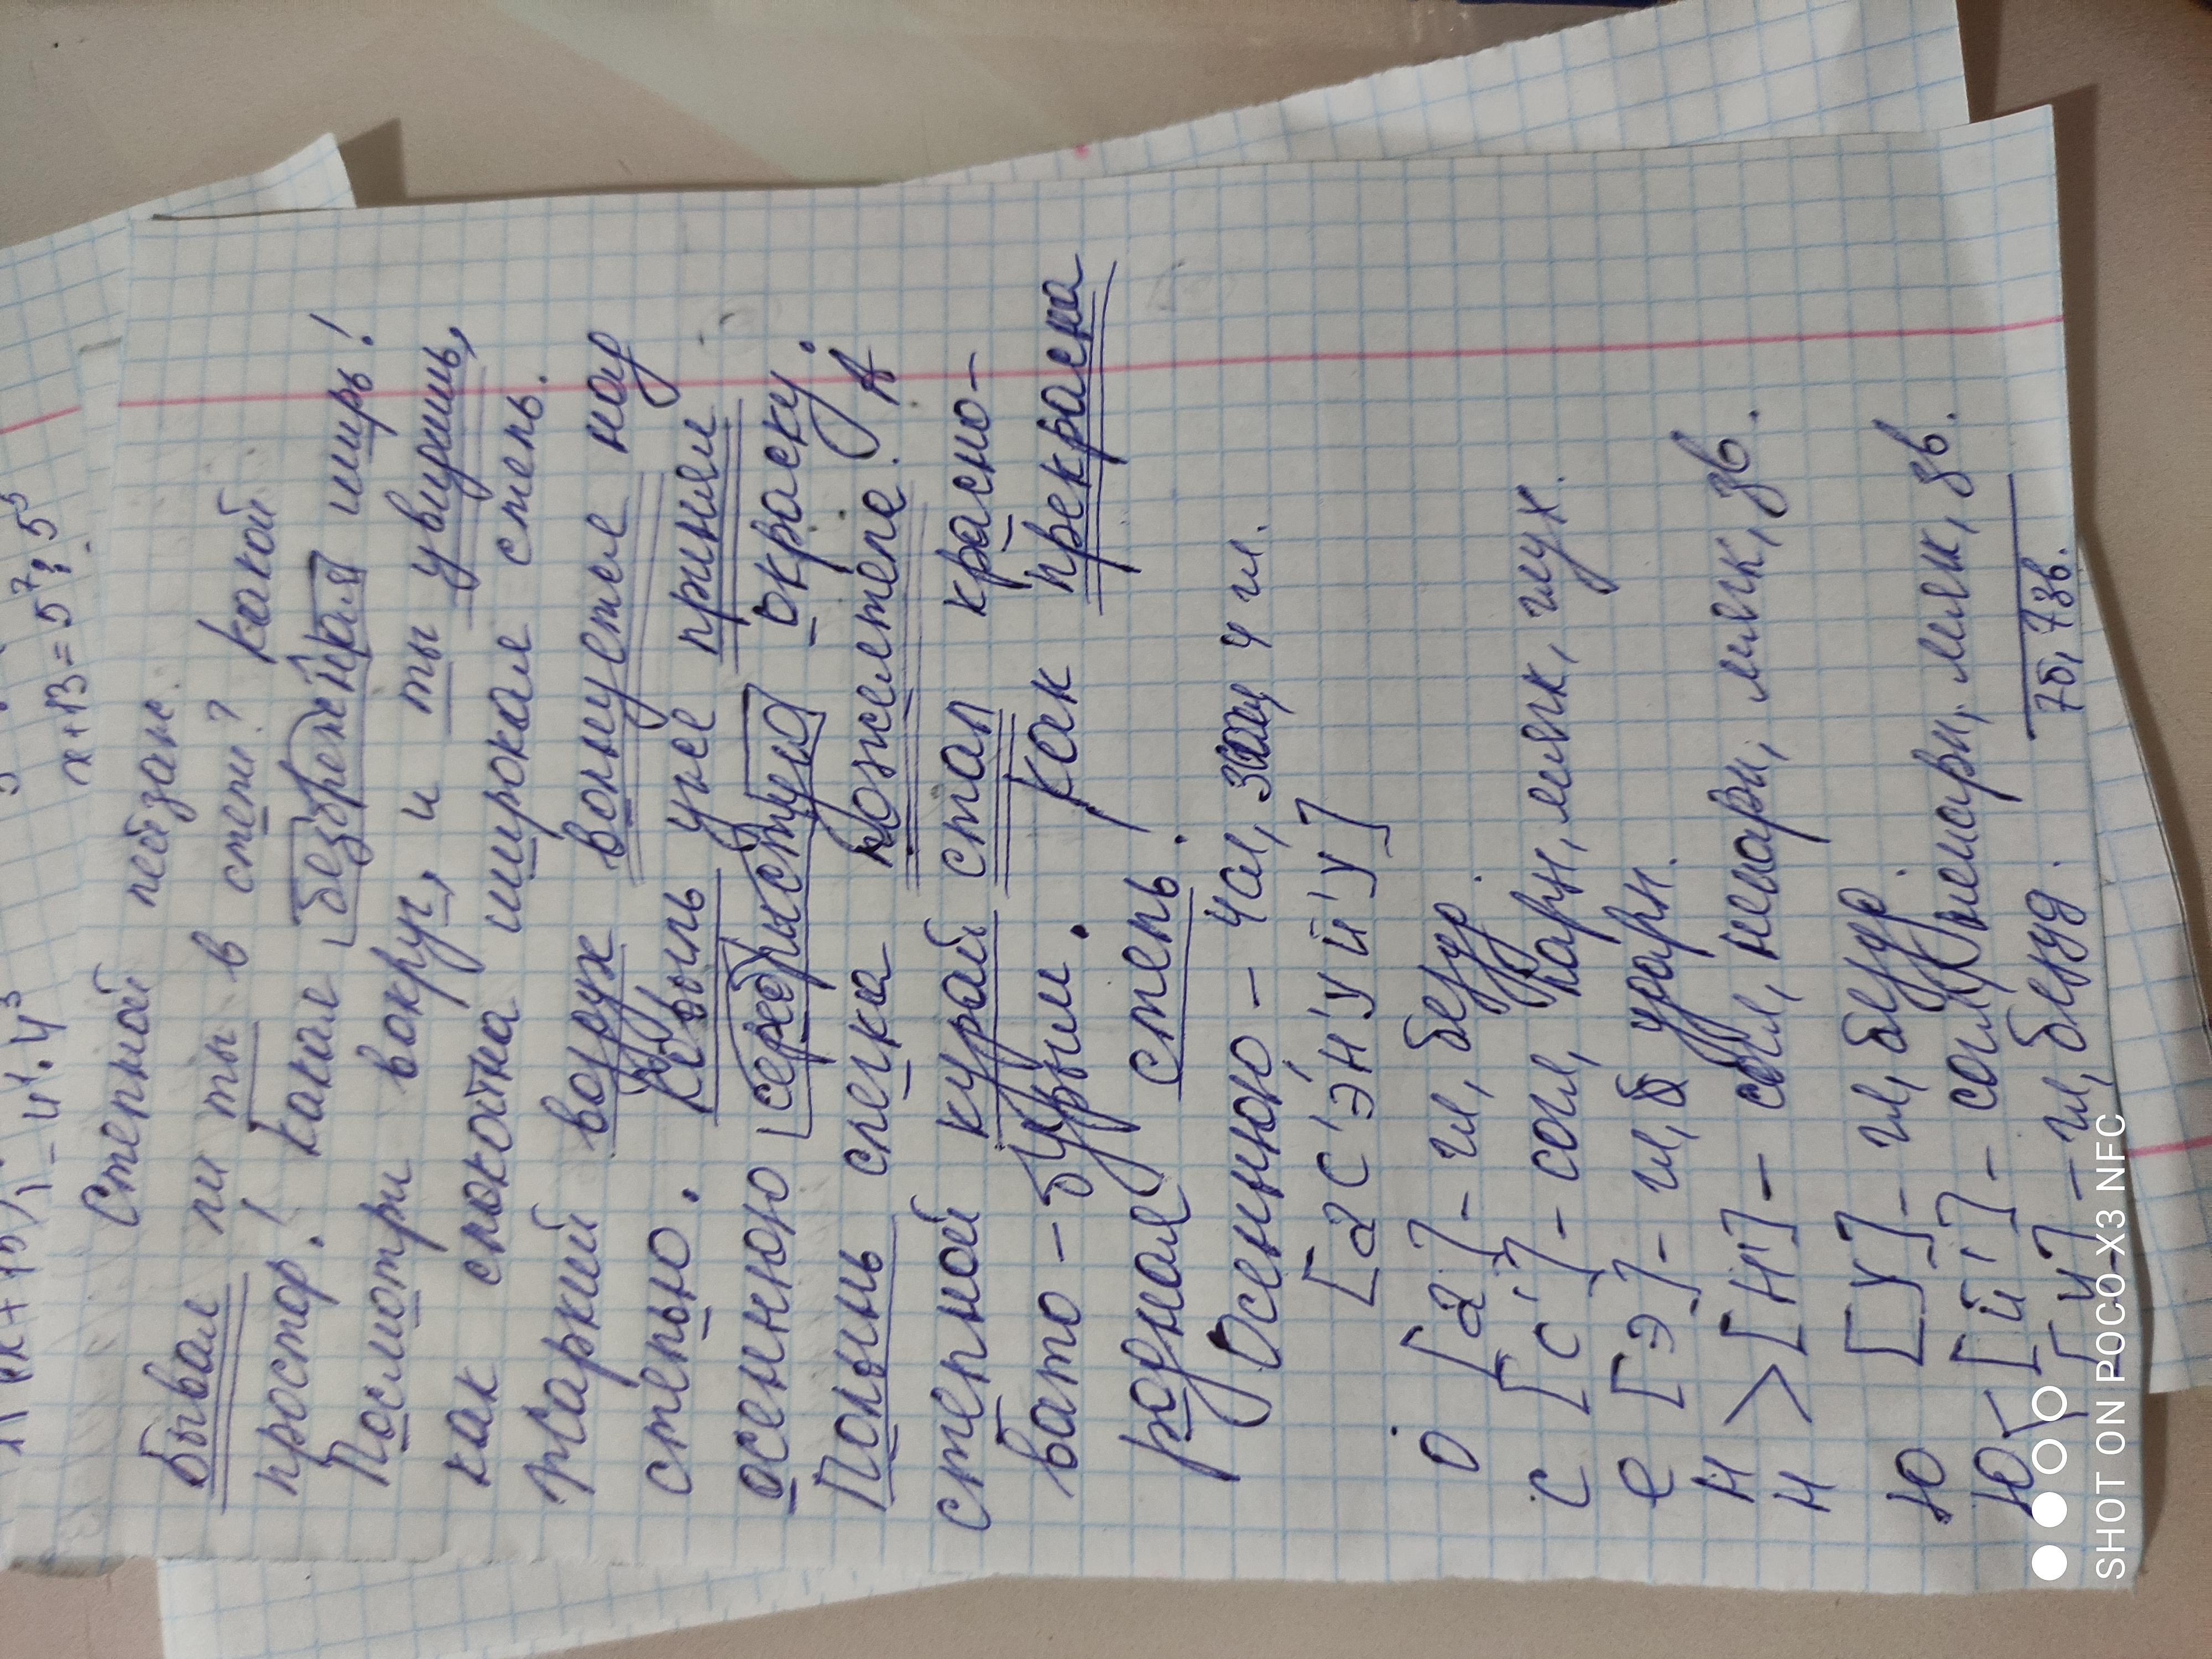 x+13=5⁷:5⁵
Степной пейзаж.
Бывал ли ты в степи? Какой
простор! Какая безбрежная ширь!
Посмотри вокруг, и ты увидишь,
как спокойна широкая степь.
Жаркий воздух волнуется над
степью. Ковыль уже принял
осеннюю серебристую окраску.
Полынь слегка пожелтела. А
степной курай стал красно-
вато-бурым. Как прекрасна
родная степь!
Осеннюю - 4 сл, 4 гл.
[ас'эн'уй'у]
О [а] - гл, безуд.
С [с'] - согл, парн, мягк, глух.
е [э] - гл, ударн.
Н > [н'] - согл, непарн, мягк, зв.
Н
Ю [у] - гл, безуд.
Ю < [й'] - согл, непарн, мягк, зв.
[у] - гл, безуд.
7б, 7зв.
SHOT ON POCO X3 NFC